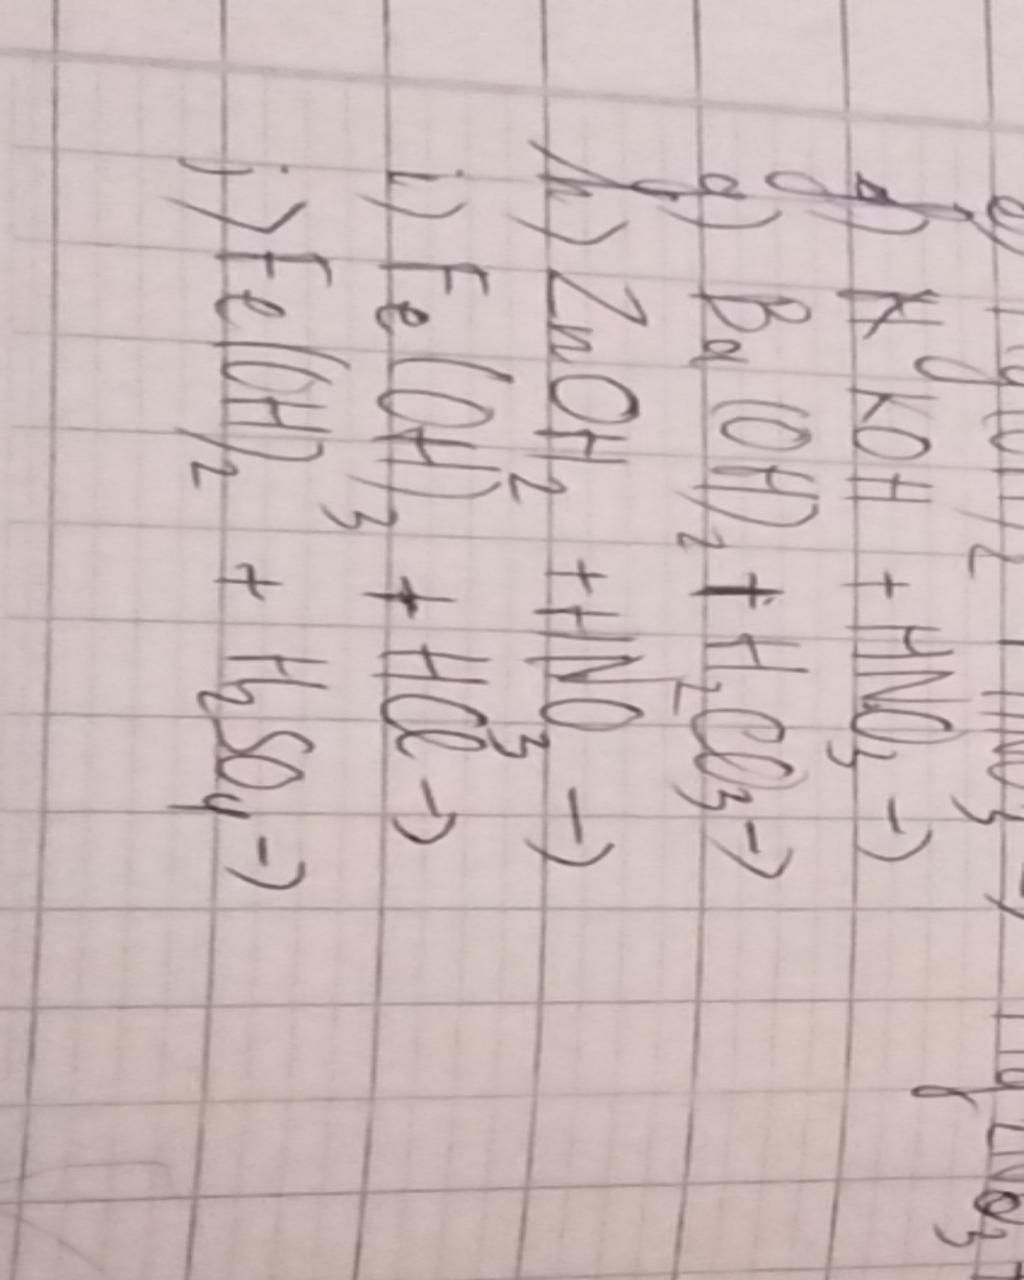 KOH + HNO₃ →
g) Ba(OH)₂ + H₂CO₃ →
h) ZnOH₂ + HNO₃ →
i) Fe(OH)₃ + HCl →
j) Fe(OH)₂ + H₂SO₄ →